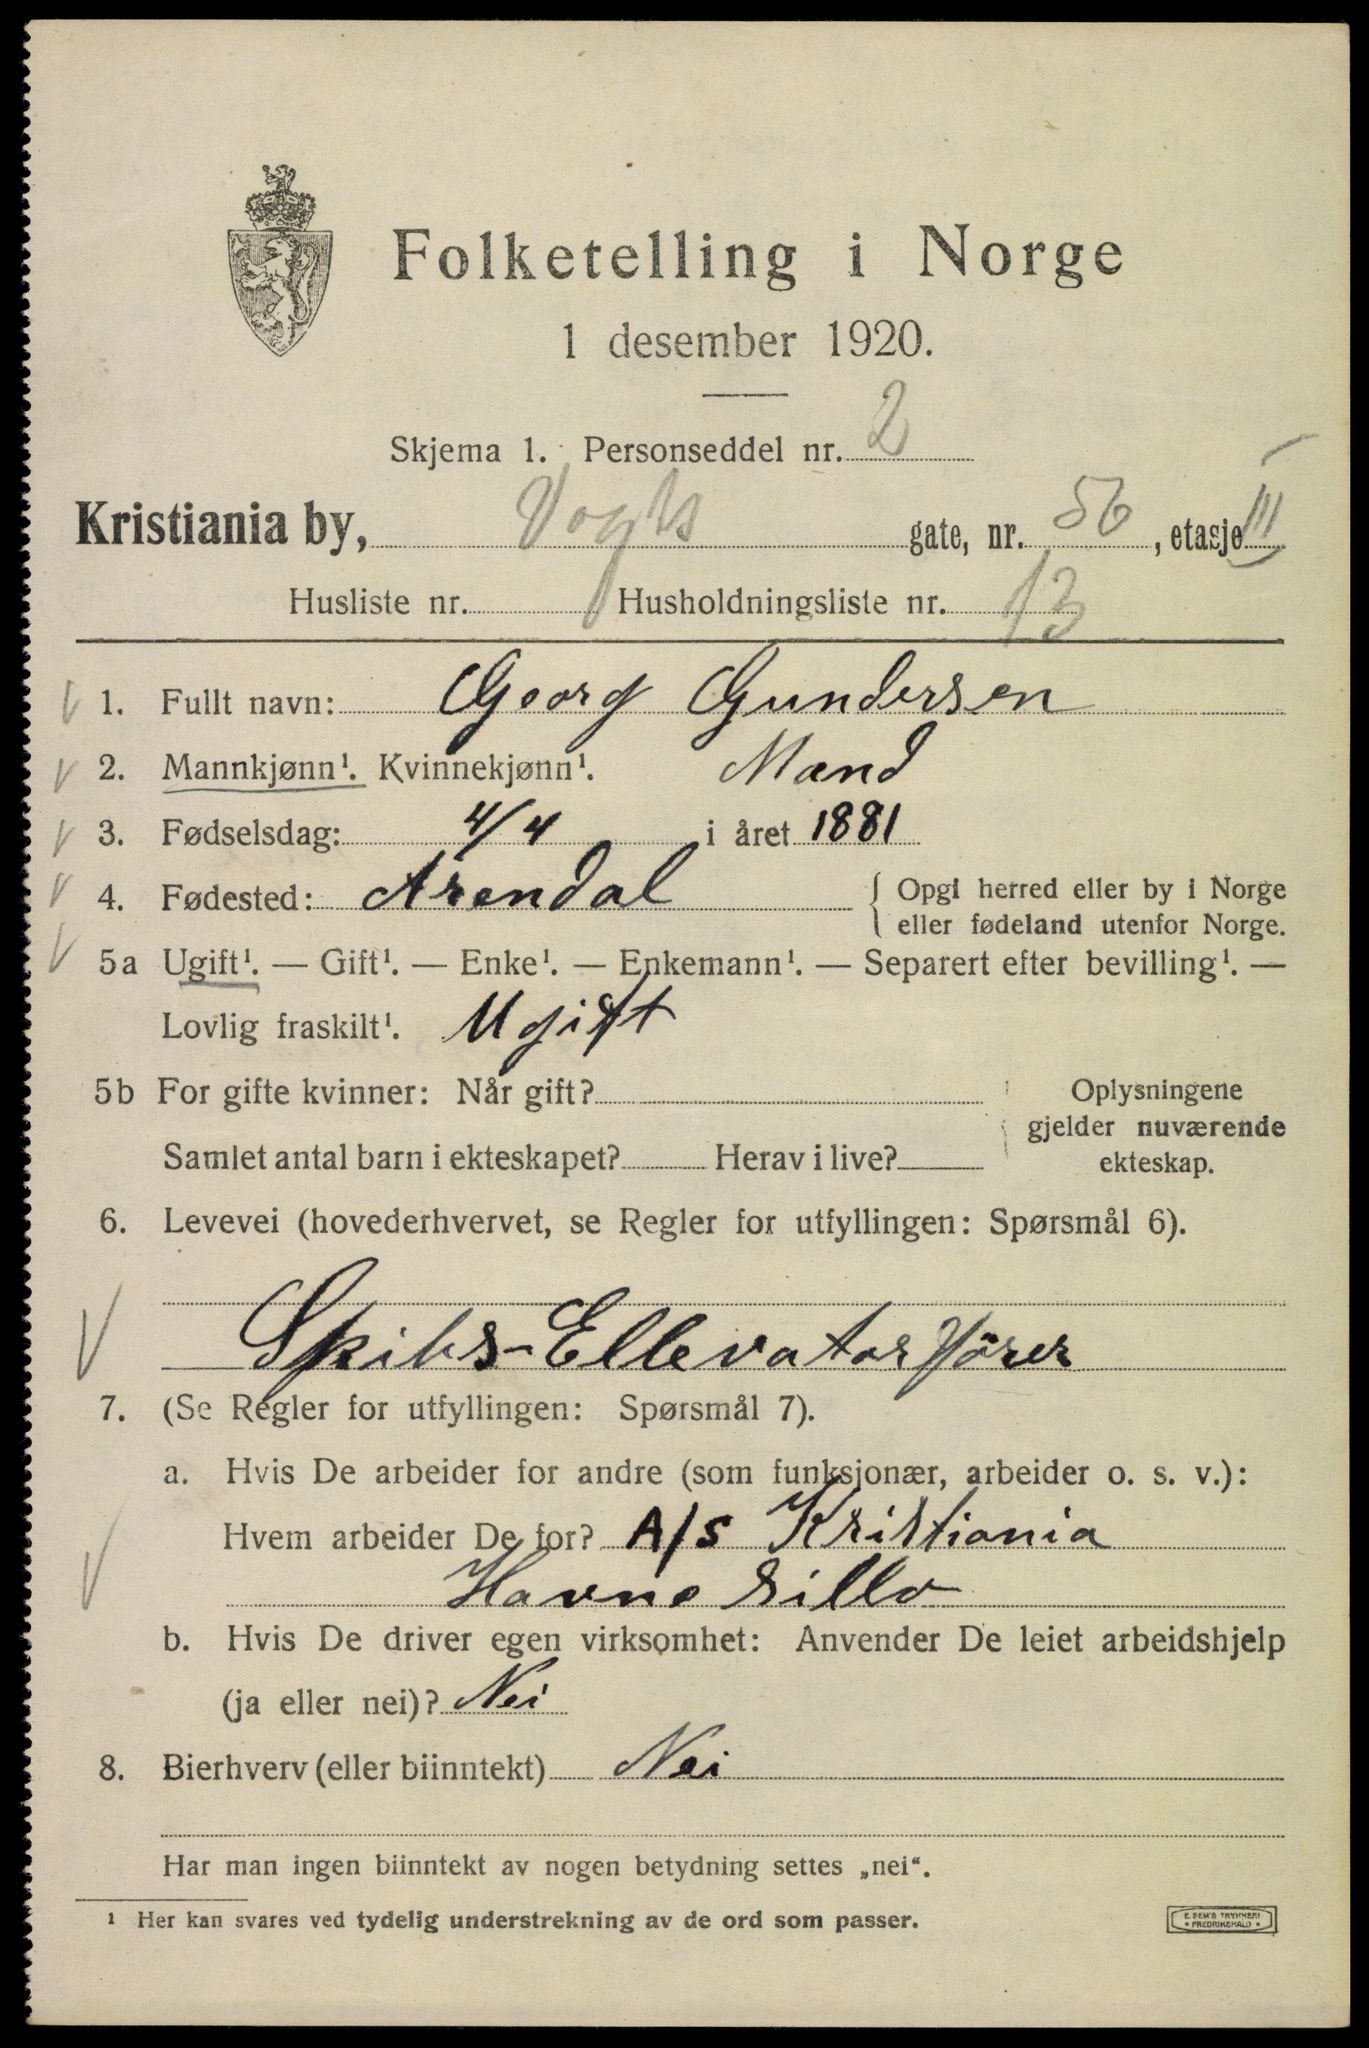 Folketelling i Norge
1 desember 1920.
Skjema 1. Personseddel nr. 2
Kristiania by, Vogts gate, nr. 56, etasje III
Husliste nr. Husholdningsliste nr. 13
1. Fullt navn: Georg Gundersen
2. Mannkjønn¹. Kvinnekjønn¹. Mand
3. Fødselsdag: 4/4 i året 1881
4. Fødested: Arendal { Opgi herred eller by i Norge
eller fødeland utenfor Norge.
5a Ugift¹. — Gift¹. — Enke¹. — Enkemann¹. — Separert efter bevilling¹. —
Lovlig fraskilt¹. Ugift
5b For gifte kvinner: Når gift? Oplysningene
gjelder nuværende
Samlet antal barn i ekteskapet? Herav i live? ekteskap.
6. Levevei (hovederhvervet, se Regler for utfyllingen: Spørsmål 6).
Skibs-Ellevatorförer
7. (Se Regler for utfyllingen: Spørsmål 7).
a. Hvis De arbeider for andre (som funksjonær, arbeider o. s. v.):
Hvem arbeider De for? A/S Kristiania
Havnesillo
b. Hvis De driver egen virksomhet: Anvender De leiet arbeidshjelp
(ja eller nei)? Nei
8. Bierhverv (eller biinntekt) Nei
Har man ingen biinntekt av nogen betydning settes „nei“.
¹ Her kan svares ved tydelig understrekning av de ord som passer.
E. SEM'S TRYKKERI
• FREDRIKSHALD •